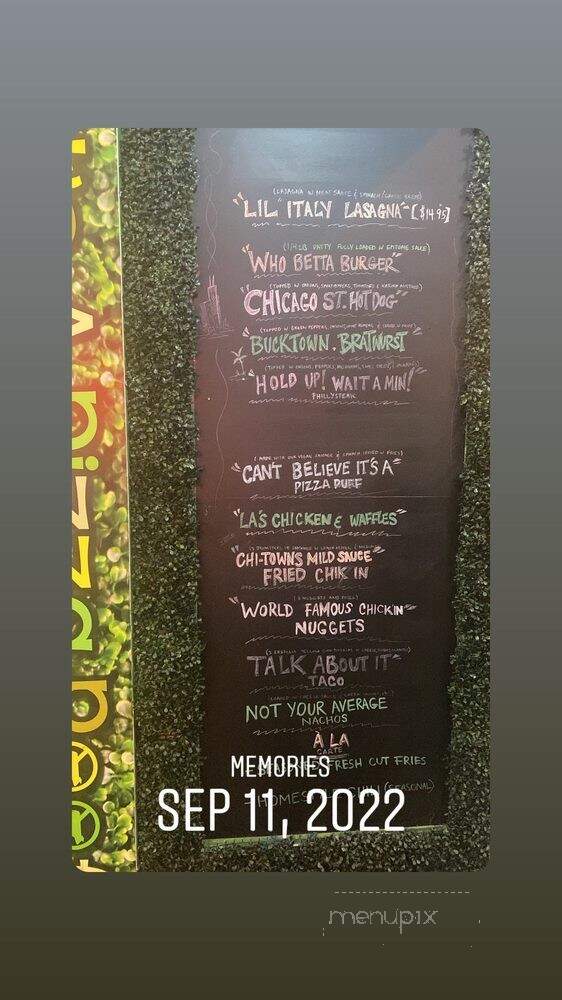 (LASAGNA W MEAT SAUCE & SPINACH
"LIL" ITALY LASAGNA" [$14.95]
(1/4 LB PATTY FULLY LOADED W EPITOME SAUCE)
"WHO BETTA BURGER"
(TOPPED W ONIONS, SPORT PEPPERS, TOMATOES &
"CHICAGO ST. HOT DOG"
(TOPPED W GREEN PEPPERS,
"BUCKTOWN. BRATWURST
(TOPPED W ONIONS, PEPPERS,
"HOLD UP! WAIT A MIN!"
PHILLYSTEAK
(MADE WITH OUR VEGAN SAUSAGE & SPINACH
"CAN'T BELIEVE IT'S A"
PIZZA PUFF
"LA'S CHICKEN & WAFFLES"
CHI-TOWNS MILD SAUCE"
FRIED CHIK IN
"WORLD FAMOUS CHICKIN"
NUGGETS
TALK ABOUT IT"
TACO
NOT YOUR AVERAGE
NACHOS
À LA
CARTE
FRESH CUT FRIES
(SEASONAL)
MEMORIES
SEP 11, 2022
menupix